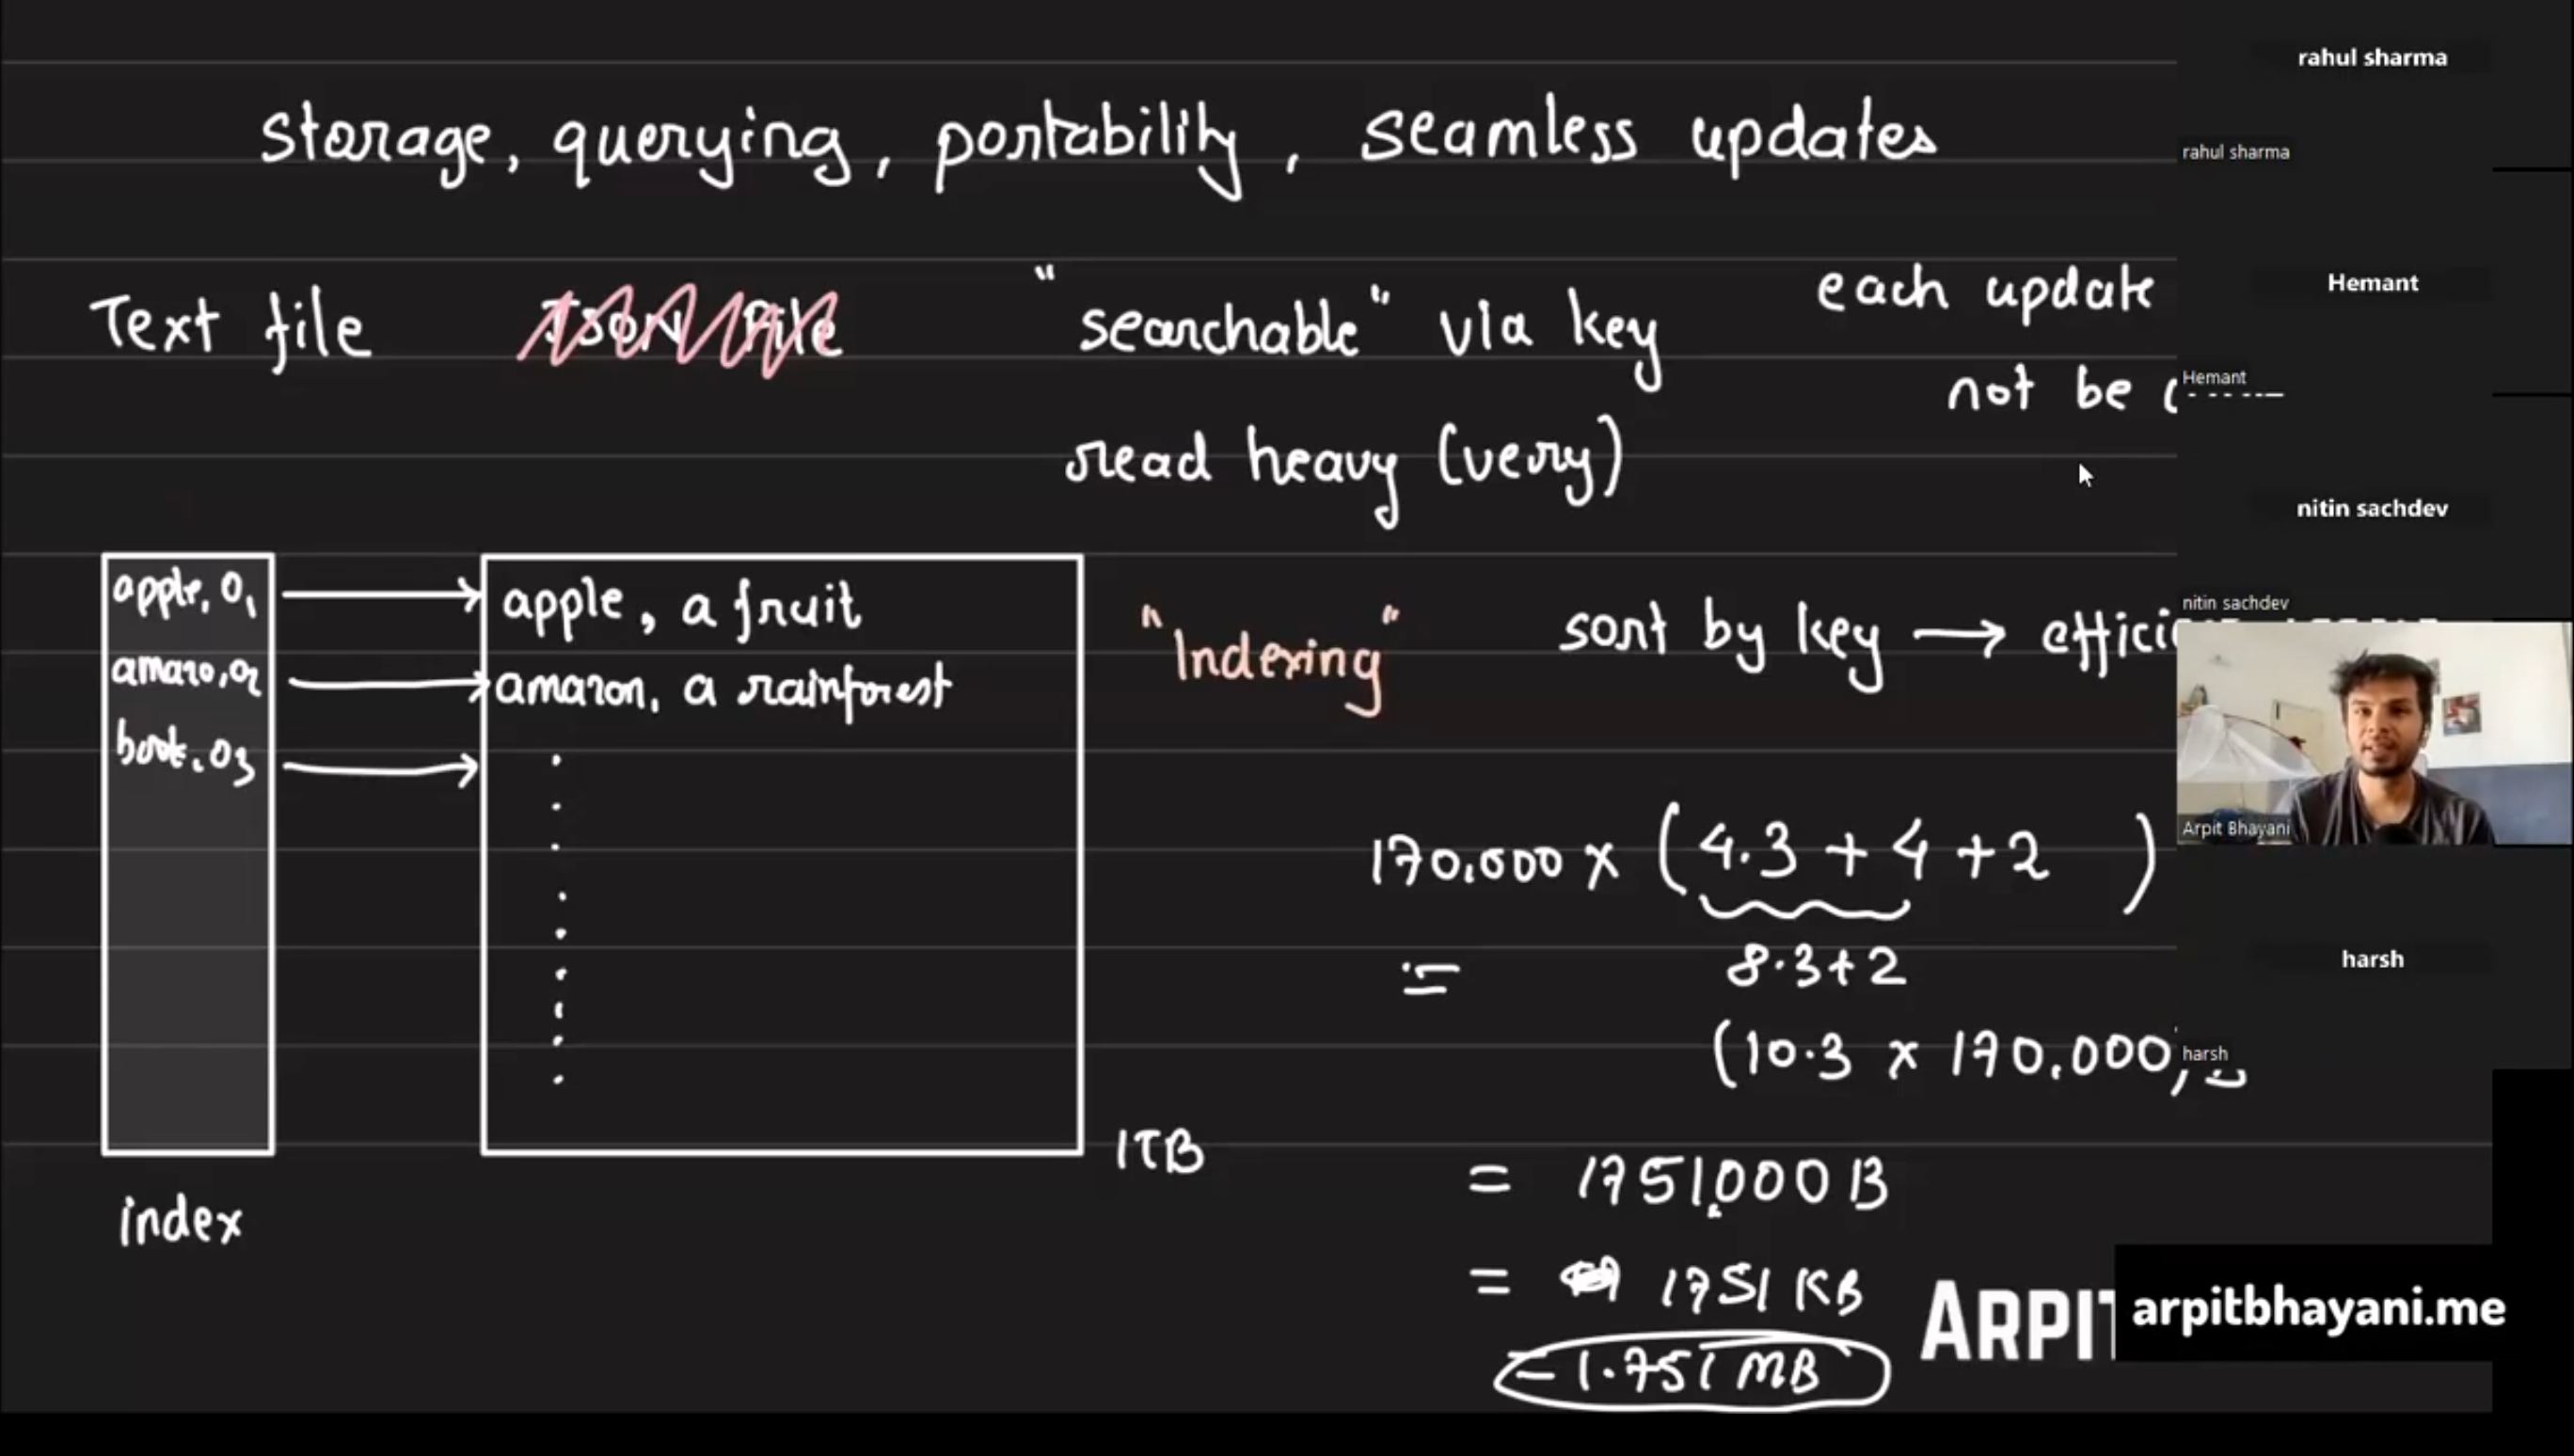 storage, querying, portability, seamless updates
Text file
JSON File
"searchable" via key
read heavy (very)
each update
not be
apple, 01
amazo, 02
book, 03
index
apple, a fruit
amazon, a rainforest
1TB
"Indexing"
sort by key → effici
170,000 x (4.3 + 4 + 2 )
= 8.3+2
(10.3 x 170,000)
= 1751,000 B
= 1751 KB
= 1.751 MB
ARPIT
arpitbhayani.me
rahul sharma
rahul sharma
Hemant
Hemant
nitin sachdev
nitin sachdev
Arpit Bhayani
harsh
harsh